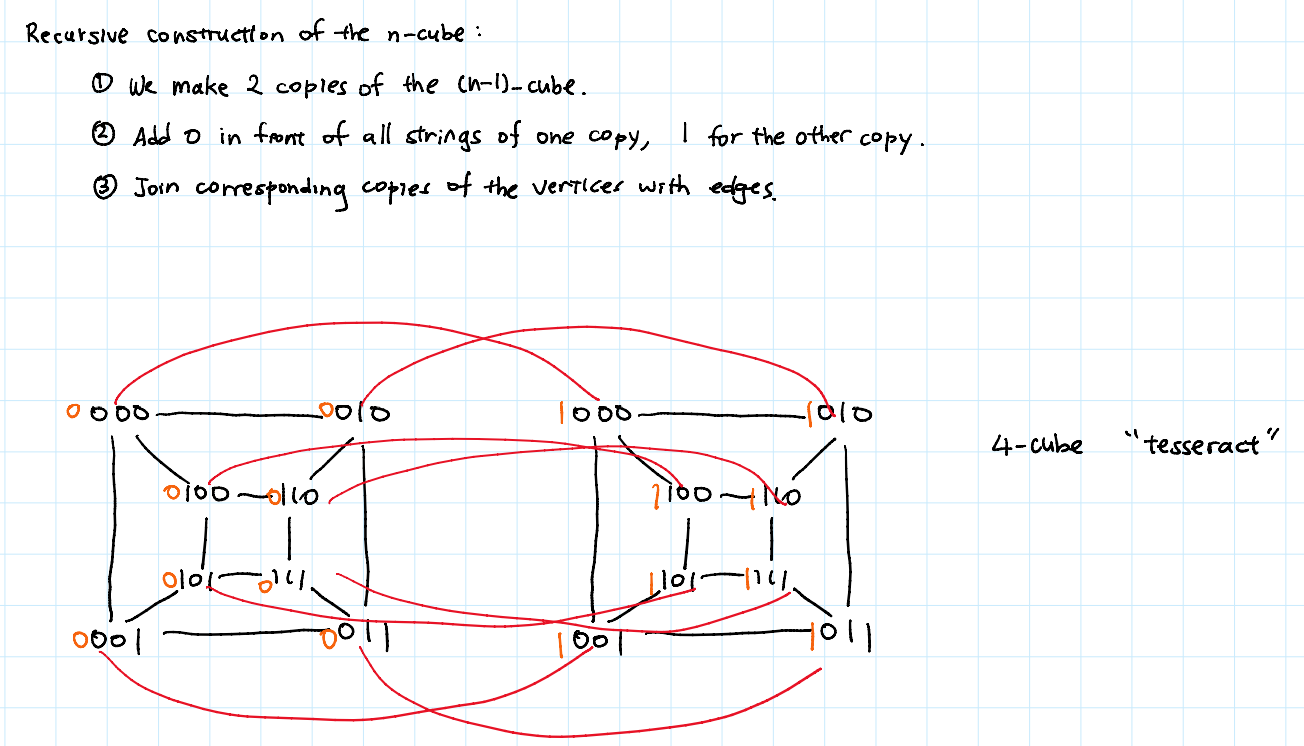 Recursive construction of the n-cube:
① We make 2 copies of the (n-1)-cube.
② Add 0 in front of all strings of one copy, 1 for the other copy.
③ Join corresponding copies of the vertices with edges.
0000 0010 1000 1010
4-cube "tesseract"
0100 0110 1100 1110
0101 0111 1101 1111
0001 0011 1001 1011